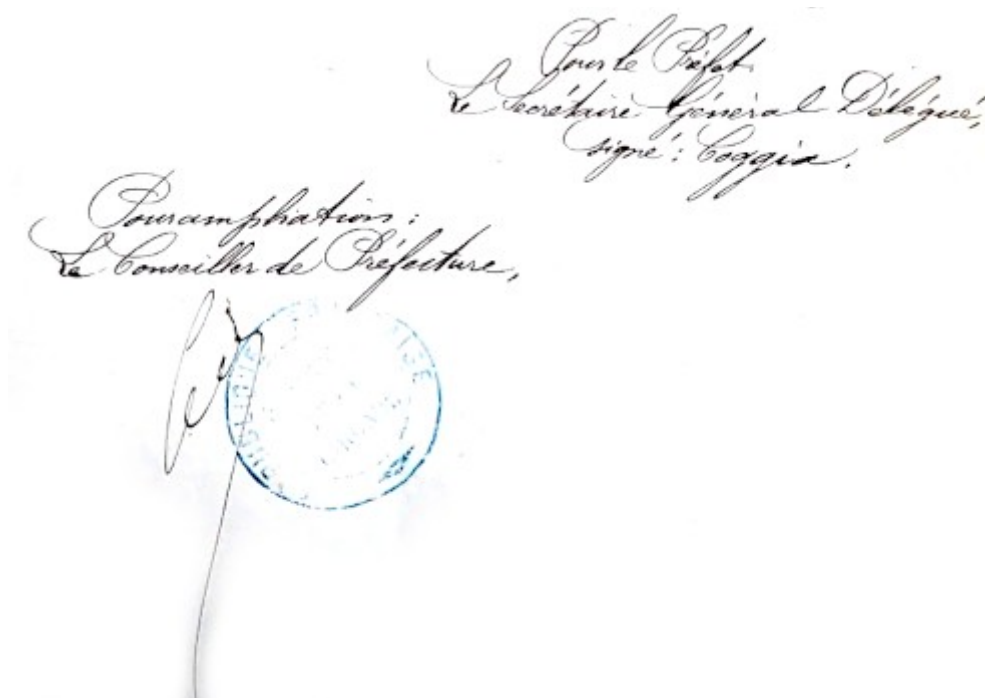 Pour le Préfet
Le Secrétaire Général Délégué,
signé : Coggia.
Pour ampliation :
Le Conseiller de Préfecture,